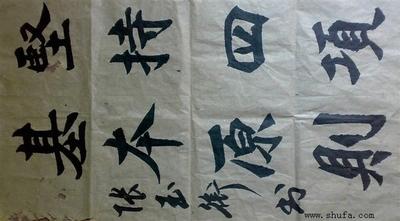 堅持四項
基本原則
张玉书
www.shufa.com